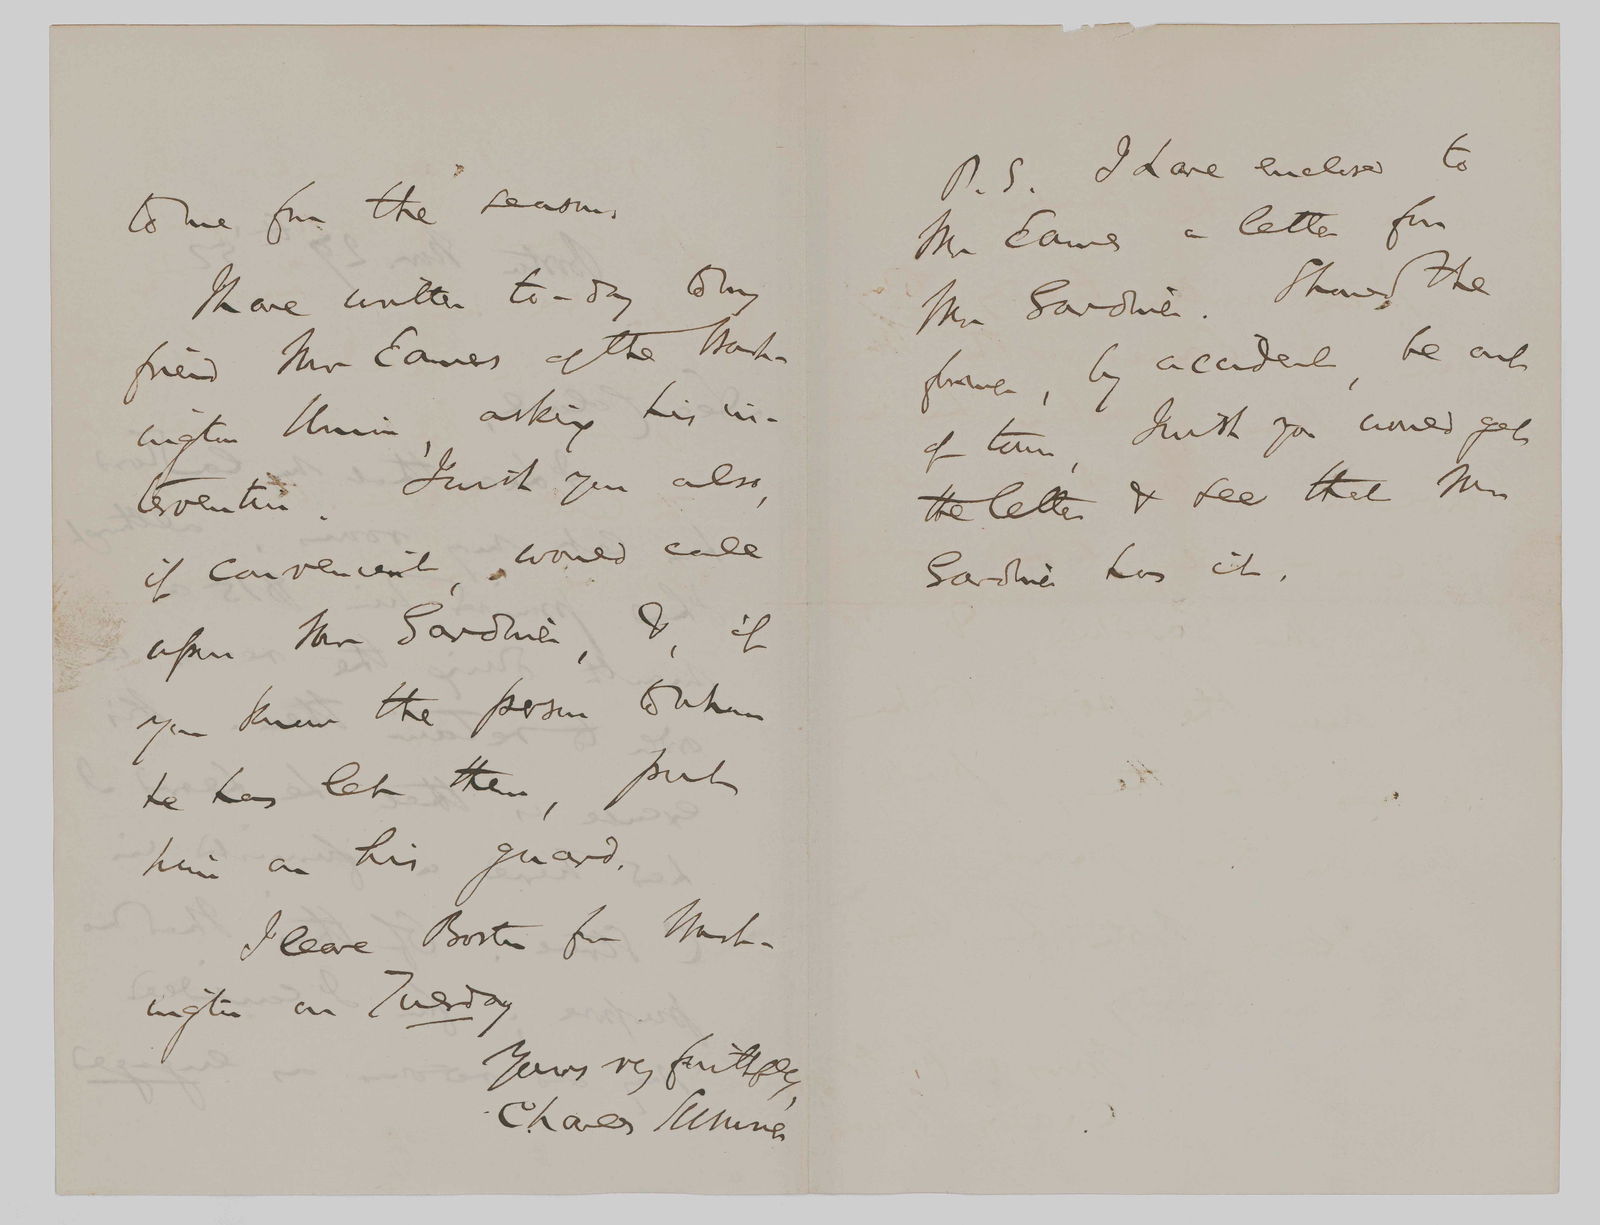 to me for the season.
I have written to-day to my
friend Mr Eames of the Wash-
ington Union, asking his in-
tervention. I wish you also,
if convenient, would call
upon Mr Gardner, &, if
you know the person to whom
he has let them, put
him on his guard.
I leave Boston for Wash-
ington on Tuesday
Yours very faithfully,
Charles Sumner
P.S. I have enclosed to
Mr Eames a letter for
Mr Gardner. Should the
former, by accident, be out
of town, I wish you would get
the letter & see that Mr
Gardner has it.